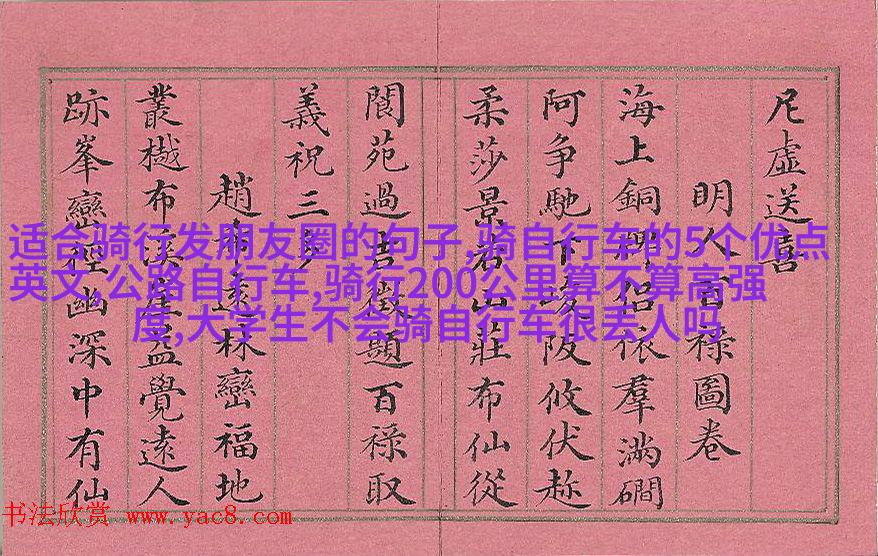 虛送喜
明人百祿圖卷
海上銅侶依羣滿磵
阿爭馳下阪攸伏
柔莎景君山莊布仙從
閬苑過徵題百祿取
義祝三多
趙希遠林巒福地
叢樾布溪崖益覺遠人
跡峯巒徑幽深中有仙
适合骑行发朋友圈的句子,骑自行车的5个优点
英文,公路自行车,骑行200公里算不算高强
度,大学生不会骑自行车很丢人吗
书法欣赏 www.yac8.com